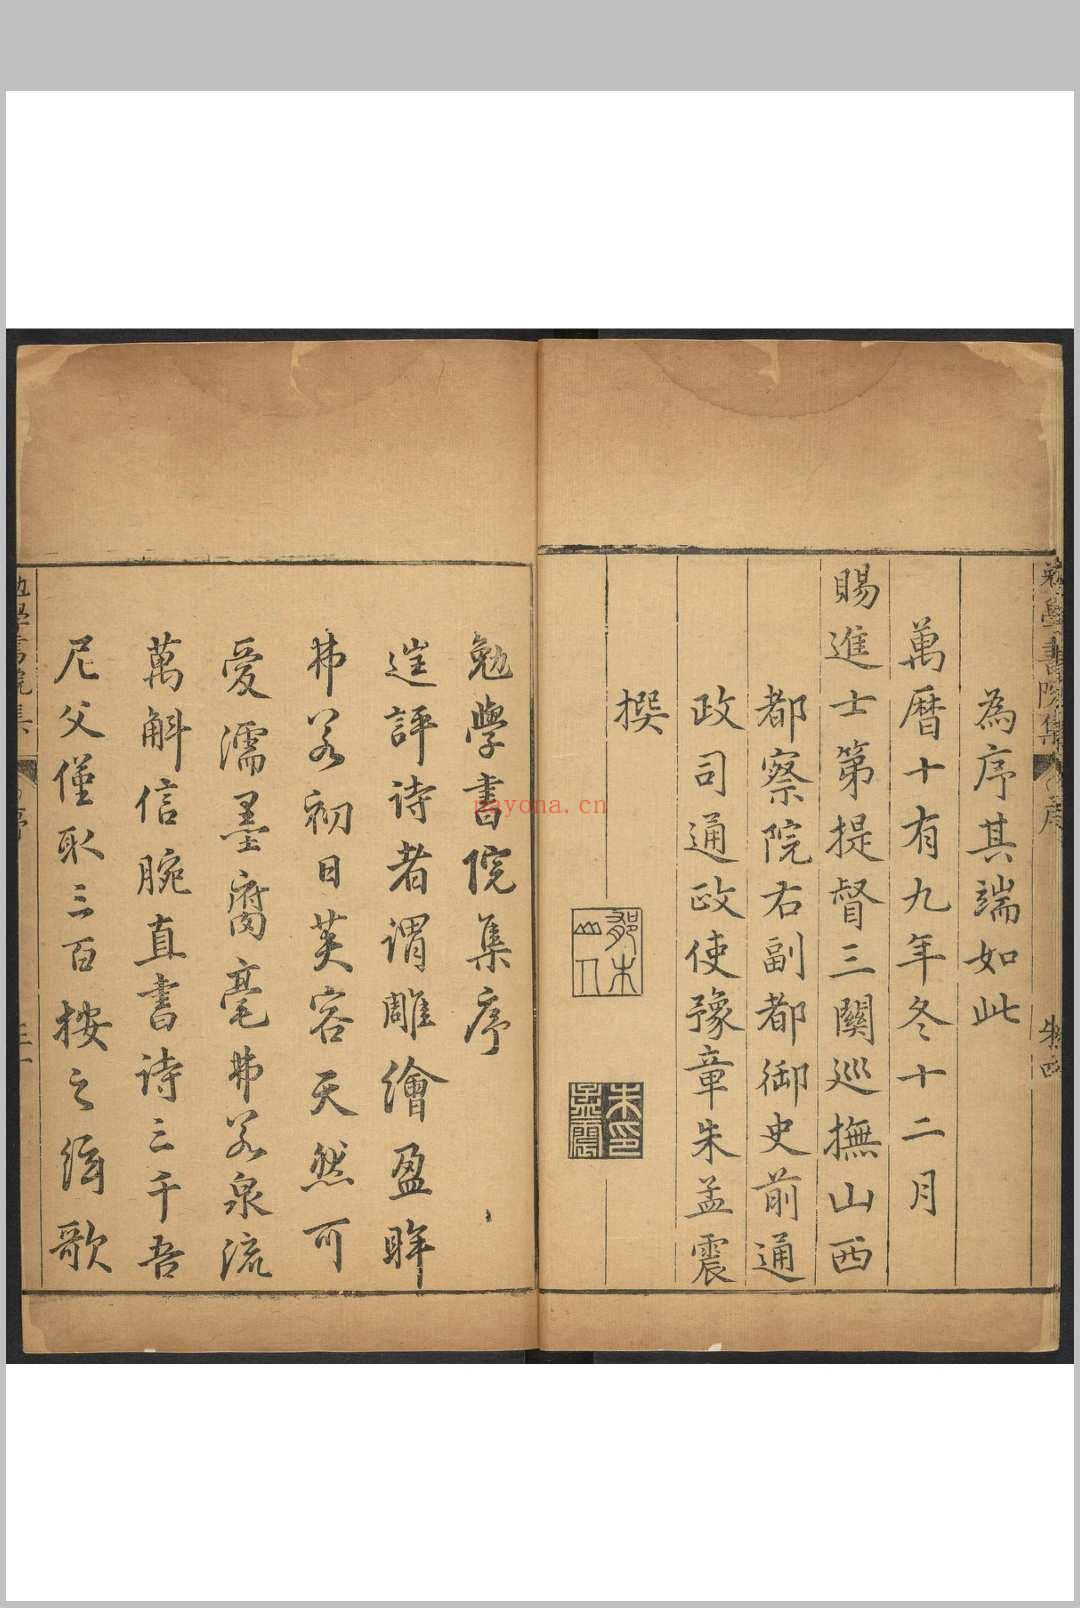 勉學書院集
為序其端如此
萬曆十有九年冬十二月
賜進士第提督三關巡撫山西
都察院右副都御史前通
政司通政使豫章朱孟震
撰
朱印孟震
勉學書院集序
進評詩者謂雕繪盈眸
弗若初日芙容天然可
愛濡墨腐毫弗若泉流
萬斛信腕直書詩三千吾
尼父僅取三百按之絃歌
勉學書院集
序
nayona.cn